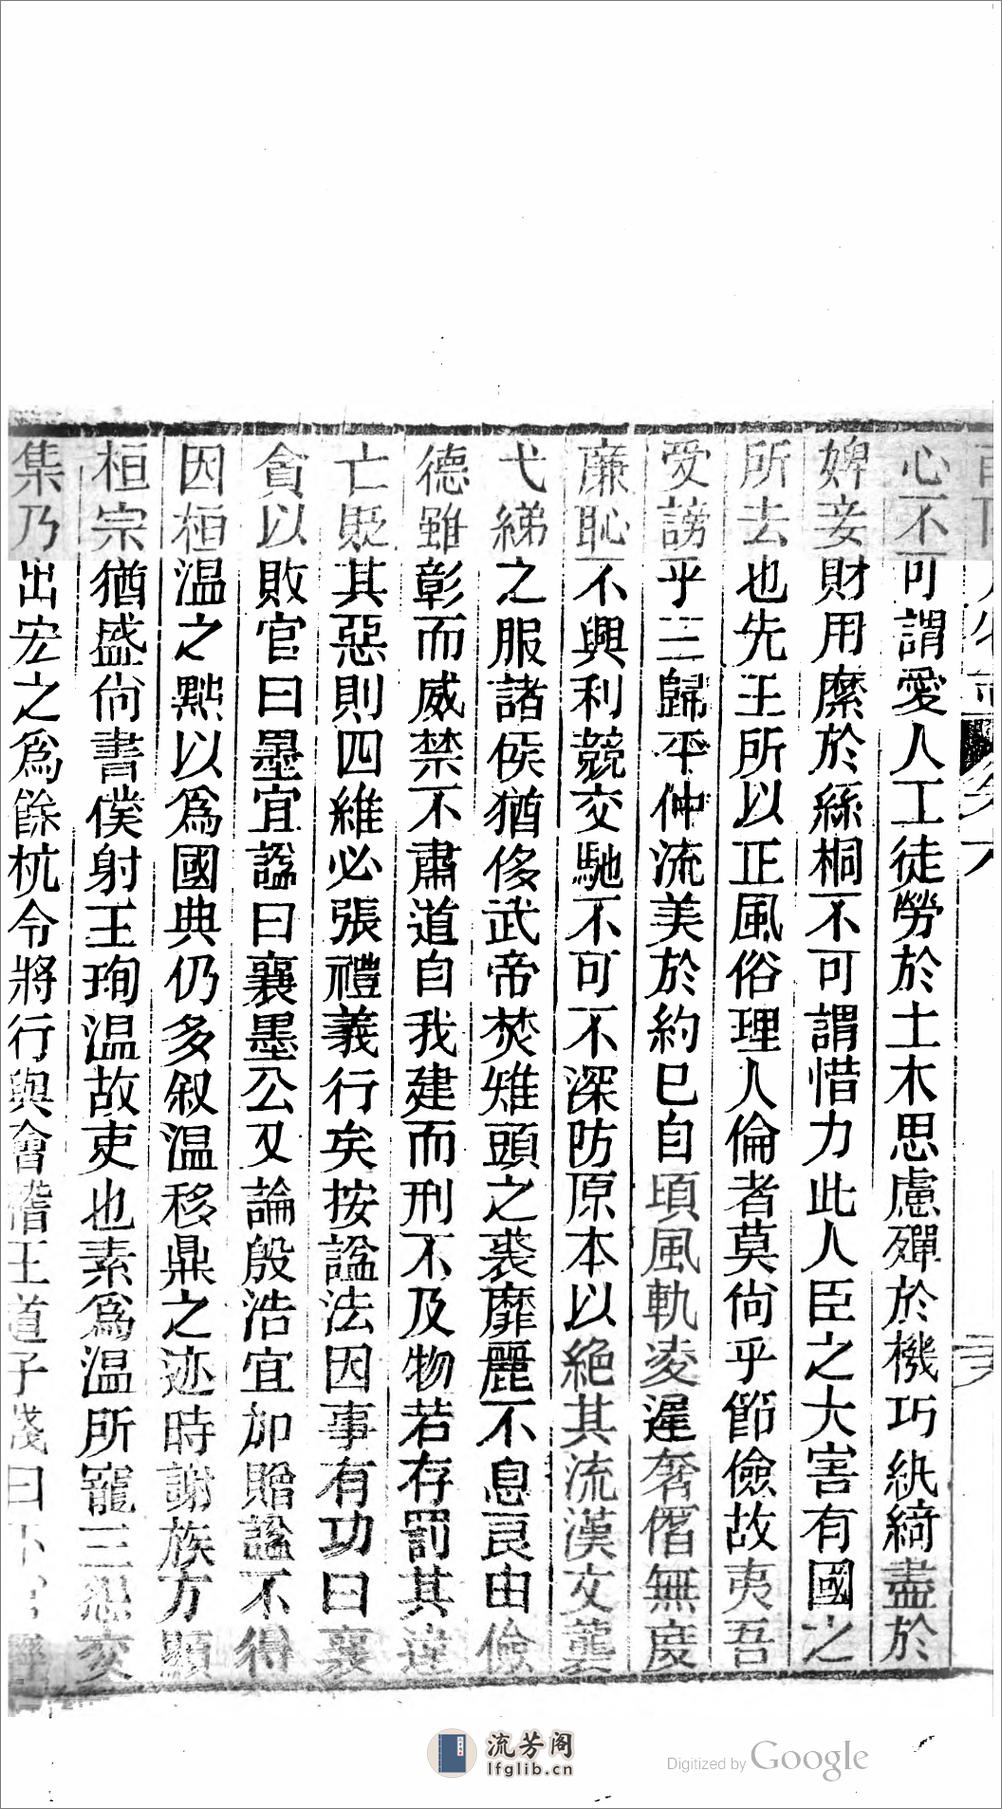 心不可謂愛人工徒勞於土木思慮殫於機巧紈綺盡於
婢妾財用縻於絲桐不可謂惜力此人臣之大害有國之
所去也先王所以正風俗理人倫者莫尚乎節儉故夷吾
受謗乎三歸平仲流美於約已自頃風軌凌遲奢僭無度
廉恥不興利競交馳不可不深防原本以絶其流漢文襲
弋綈之服諸侯猶侈武帝焚雉頭之裘靡麗不息良由儉
德雖彰而威禁不肅道自我建而刑不及物若存罰其違
亡貶其惡則四維必張禮義行矣按諡法因事有功曰襄
貪以敗官曰墨宜諡曰襄墨公又論殷浩宜加贈諡不得
因桓温之黜以爲國典仍多叙温移鼎之迹時謝族方顯
桓宗猶盛尚書僕射王珣温故吏也素爲温所寵三怨交
集乃出宏之爲餘杭令將行與會稽王道子牋曰下官
流芳阁
lfglib.cn
Digitized by Google